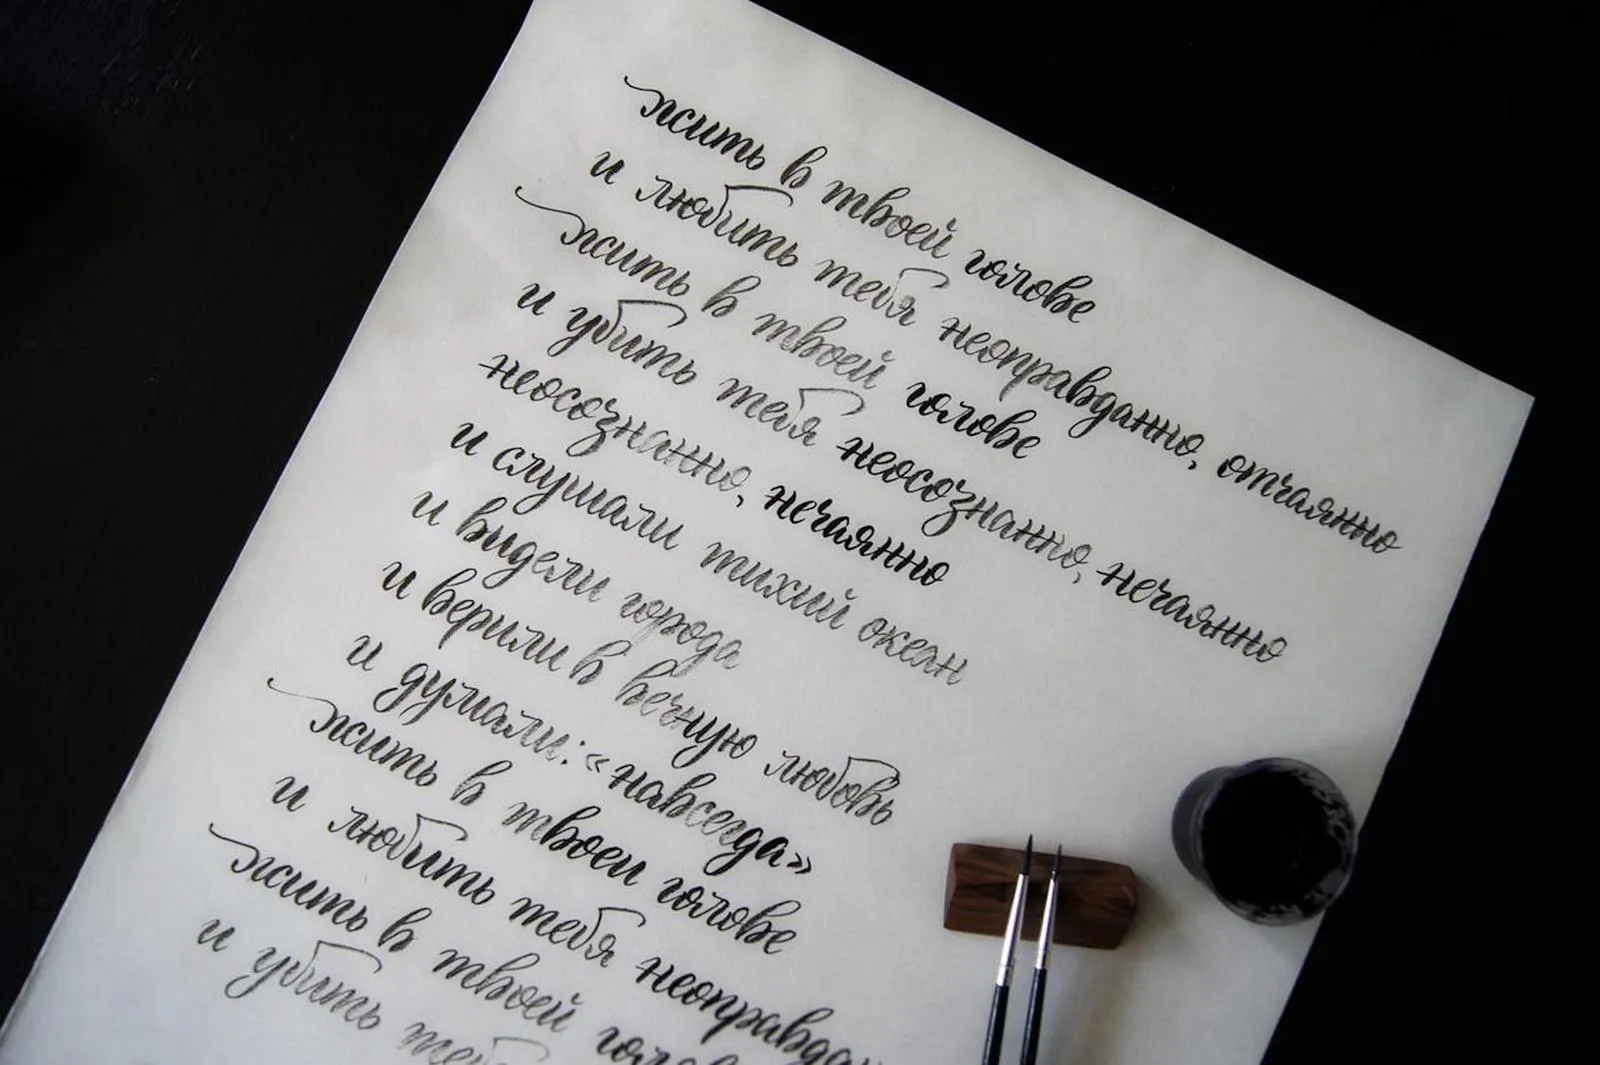 жить в твоей голове
и любить тебя неоправданно, отчаянно
жить в твоей голове
и убить тебя неосознанно, нечаянно
неосознанно, нечаянно
и слушали тихий океан
и видели города
и верили в вечную любовь
и думали: «навсегда»
жить в твоей голове
и любить тебя
жить в твоей
и убить